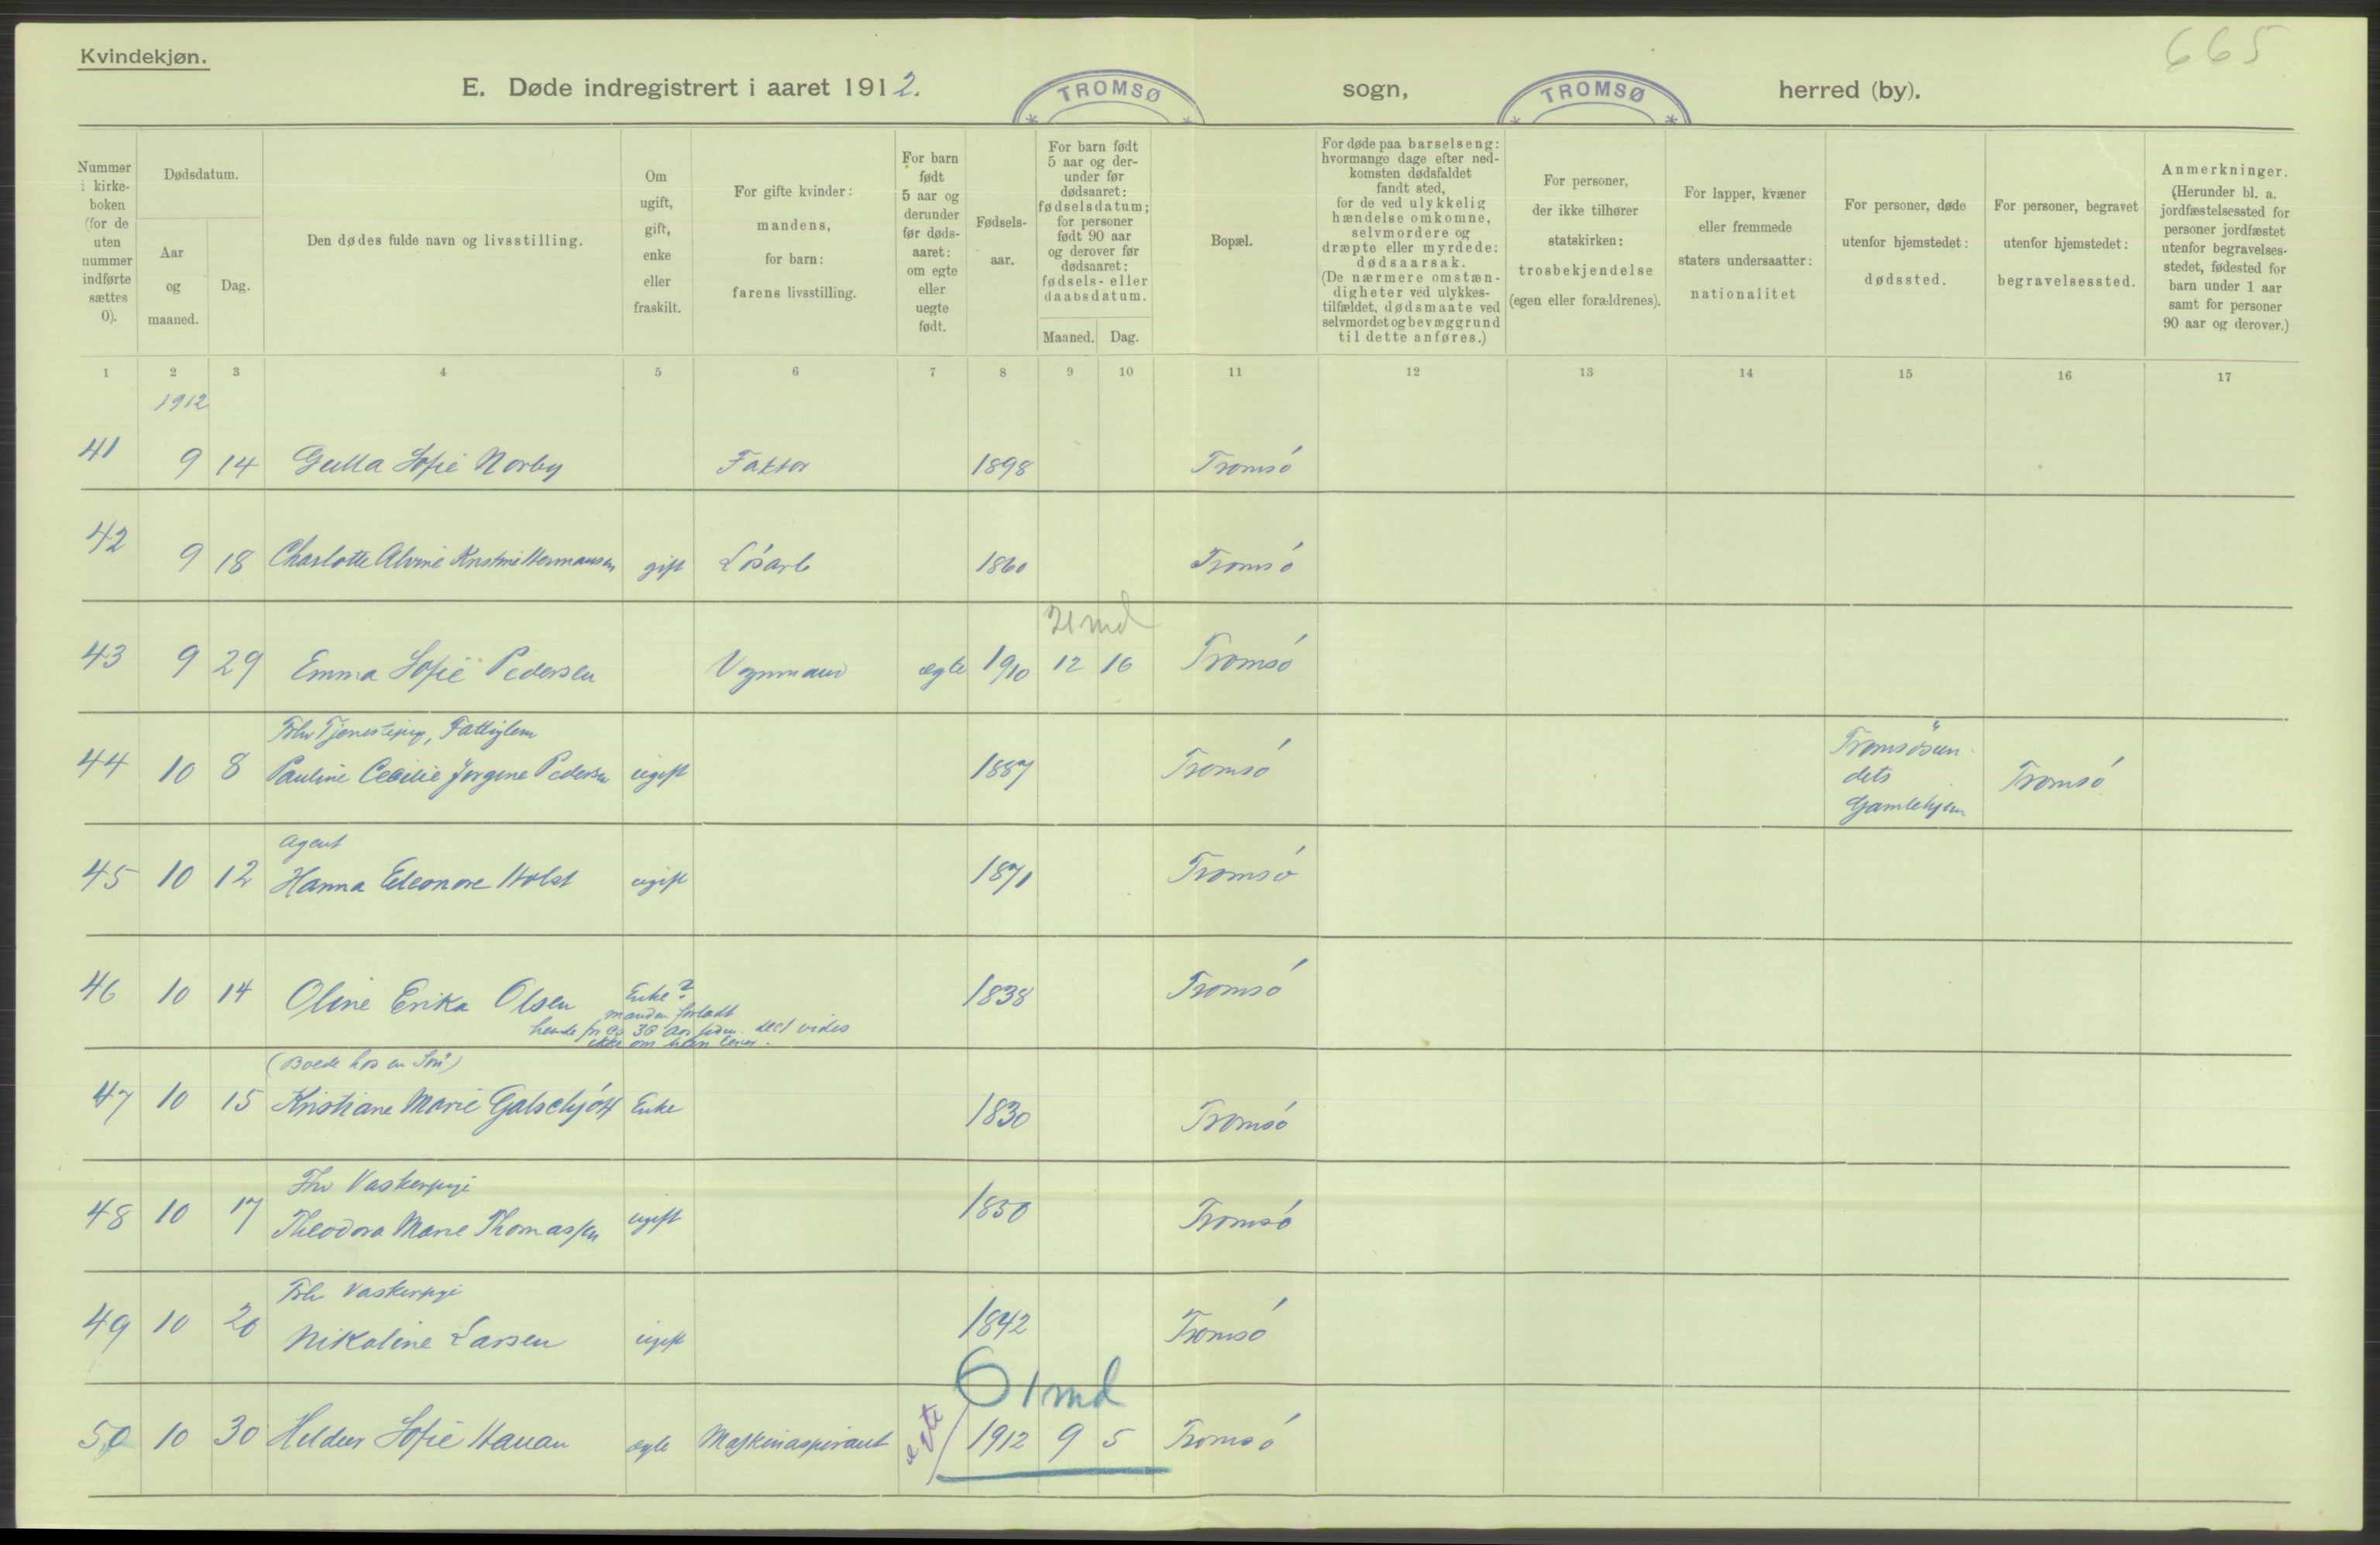 665
Kvindekjøn.
E. Døde indregistrert i aaret 1912. TROMSØ sogn, TROMSØ herred (by).
Nummer i kirke-boken (for de uten nummer indførte sættes 0).
Dødsdatum.
Aar og maaned.
Dag.
Den dødes fulde navn og livsstilling.
Om ugift, gift, enke eller fraskilt.
For gifte kvinder: mandens, for barn: farens livsstilling.
For barn født 5 aar og derunder før døds-aaret: om egte eller uegte født.
Fødsels-aar.
For barn født 5 aar og der-under før dødsaaret: fødselsdatum; for personer født 90 aar og derover før dødsaaret: fødsels- eller daabsdatum.
Maaned. Dag.
Bopæl.
For døde paa barselseng: hvormange dage efter ned-komsten dødsfaldet fandt sted, for de ved ulykkelig hændelse omkomne, selvmordere og dræpte eller myrdede: dødsaarsak. (De nærmere omstæn-digheter ved ulykkes-tilfældet, dødsmaate ved selvmordet og bevæggrund til dette anføres.)
For personer, der ikke tilhører statskirken: trosbekjendelse (egen eller forældrenes).
For lapper, kvæner eller fremmede staters undersaatter: nationalitet
For personer, døde utenfor hjemstedet: dødssted.
For personer, begravet utenfor hjemstedet: begravelsessted.
Anmerkninger. (Herunder bl. a. jordfæstelsessted for personer jordfæstet utenfor begravelses-stedet, fødested for barn under 1 aar samt for personer 90 aar og derover.)
1 2 3 4 5 6 7 8 9 10 11 12 13 14 15 16 17
1912
41 9 14 Gulla Sofie Norby Faktor 1898 Tromsø
42 9 18 Charlotte Alvine Kristine Hermansen gift Løsarb 1860 Tromsø
21 md
43 9 29 Emma Sofie Pedersen Vognmand egte 1910 12 16 Tromsø
Fhv Tjenestepige, Fattiglem
44 10 8 Pauline Cecilie Jørgine Pedersen ugift 1887 Tromsø Tromsøsun-dets Gamlehjem Tromsø
Agent
45 10 12 Hanna Eleonore Holst ugift 1871 Tromsø
46 10 14 Oline Erika Olsen Enke? 1838 Tromsø
manden forlodt
hende for ca 30 aar siden. det vides
ikke om han lever.
(Boede hos en Søn)
47 10 15 Kristiane Marie Galschjøtt Enke 1830 Tromsø
Fhv Vaskerpige
48 10 17 Theodora Marie Thomassen ugift 1850 Tromsø
Fhv Vaskerpige
49 10 20 Nikoline Larsen ugift 1842 Tromsø
1 md
50 10 30 Sofie Hauan egte Maskinaspirant egte 1912 9 5 Tromsø